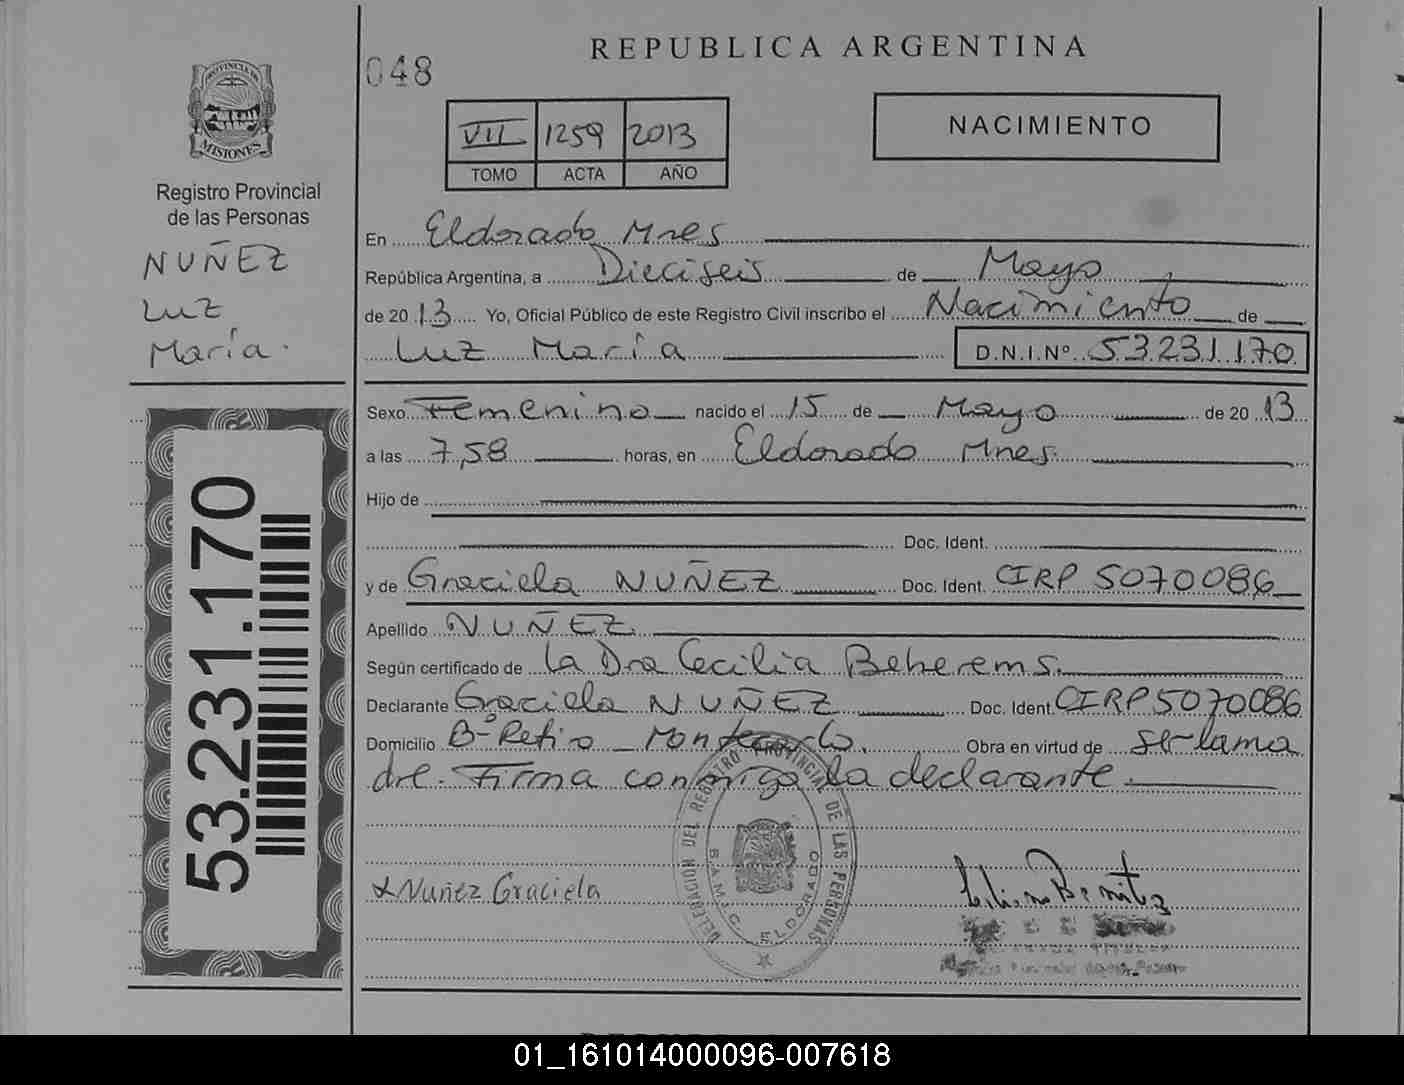 048
REPUBLICA ARGENTINA
PROVINCIA DE
MISIONES
Registro Provincial
de las Personas
NUÑEZ
LUZ
María.
53.231.170
VII 1259 2013
TOMO ACTA AÑO
NACIMIENTO
En Eldorado Mnes
República Argentina, a Dieciseis de Mayo
de 2013 Yo, Oficial Público de este Registro Civil inscribo el Nacimiento de
Luz María D.N.I.Nº 53.231.170
Sexo Femenino nacido el 15 de Mayo de 2013
a las 7,58 horas, en Eldorado Mnes.
Hijo de
Doc. Ident.
y de Graciela NUÑEZ Doc. Ident. CIRP 5070086
Apellido NUÑEZ
Según certificado de la Dra Cecilia Beherems.
Declarante Graciela NUÑEZ Doc. Ident. CIRP 5070086
Domicilio Bº Retiro Montecarlo. Obra en virtud de ser la ma
dre. Firma conmigo la declarante.
DELEGACION DEL REGISTRO PROVINCIAL DE LAS PERSONAS
ELDORADO
Nuñez Graciela
01_161014000096-007618